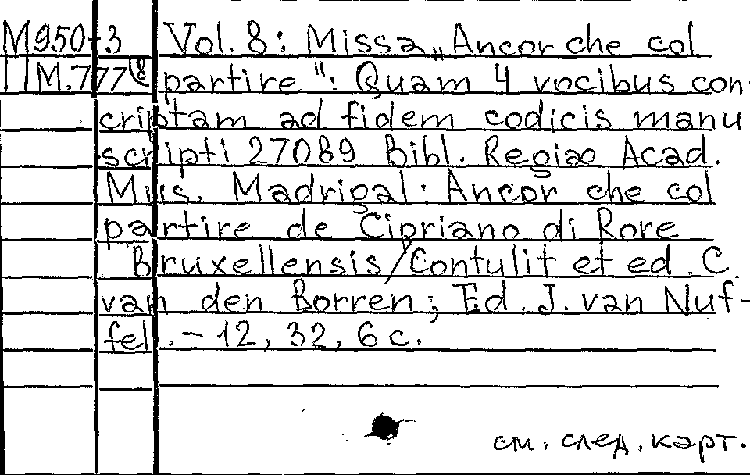 M950-3 Vol. 8: Missa „Ancor che col
П M.777 partire": Quam 4 vocibus con-
criptam ad fidem codicis manu
scripti 27089 Bibl. Regiae Acad.
Mus. Madrigal: Ancor che col
partire de Cipriano di Rore
Bruxellensis/Contulit et ed. C.
van den Borren; Ed. J. van Nuf-
fel. – 12, 32, 6 c.
см. след. карт.